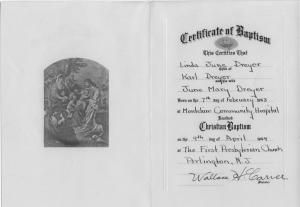 Certificate of Baptism
This Certifies That
Linda June Dreyer
Karl Dreyer
June Mary Dreyer
Born on the 7th day of February
at Mountclair Community Hospital
Received
Christian Baptism
on the 9th day of April
at The First Presbyterian Church
Arlington, N.J.
Wallace H. Carver
Minister